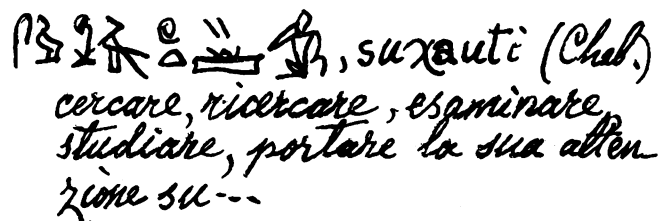 , suχauti (Chab.)
cercare, ricercare, esaminare,
studiare, portare la sua atten-
zione su---